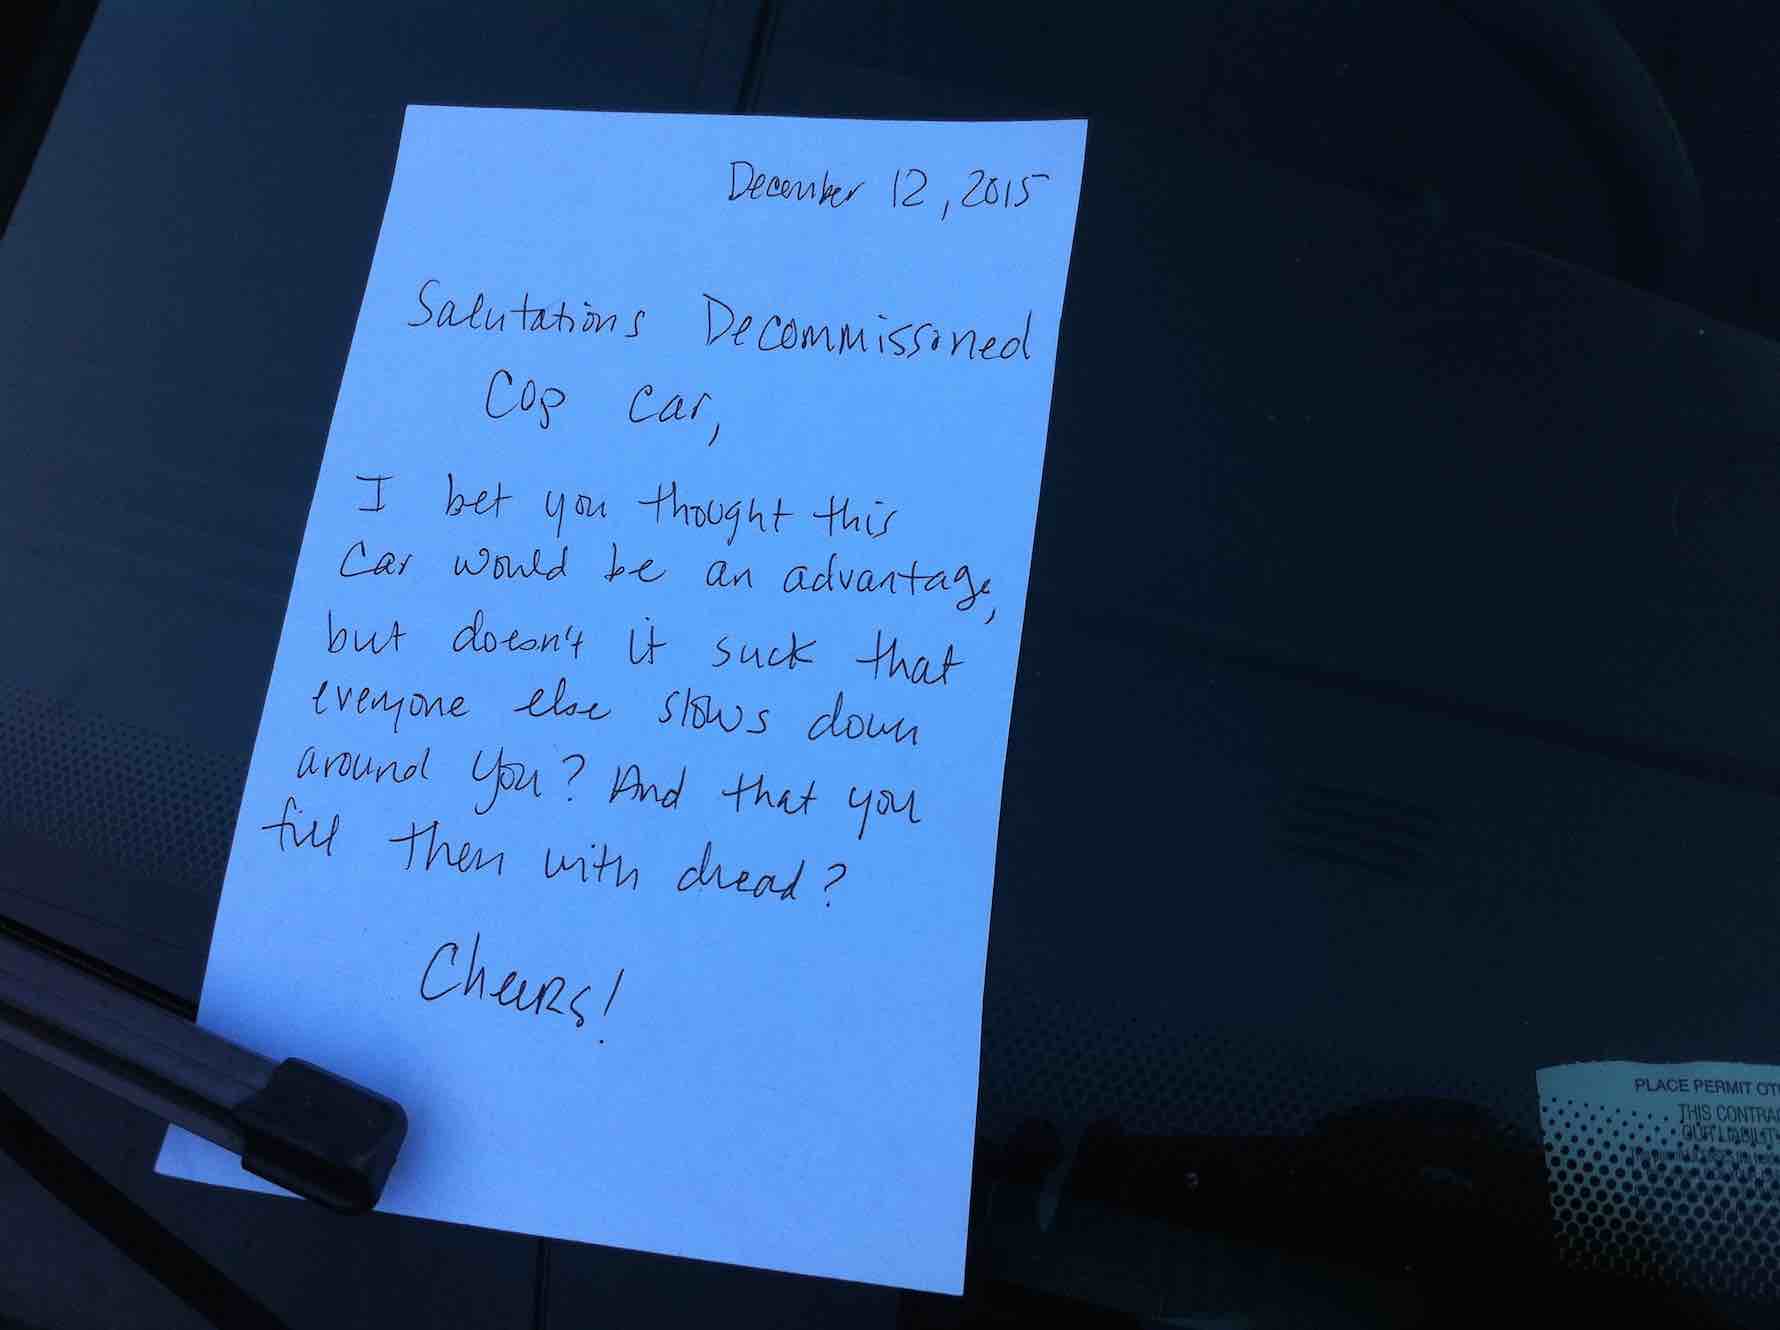 December 12, 2015
Salutations Decommissioned
Cop Car,
I bet you thought this
car would be an advantage,
but doesn't it suck that
everyone else slows down
around you? And that you
fill them with dread?
Cheers!
PLACE PERMIT
THIS